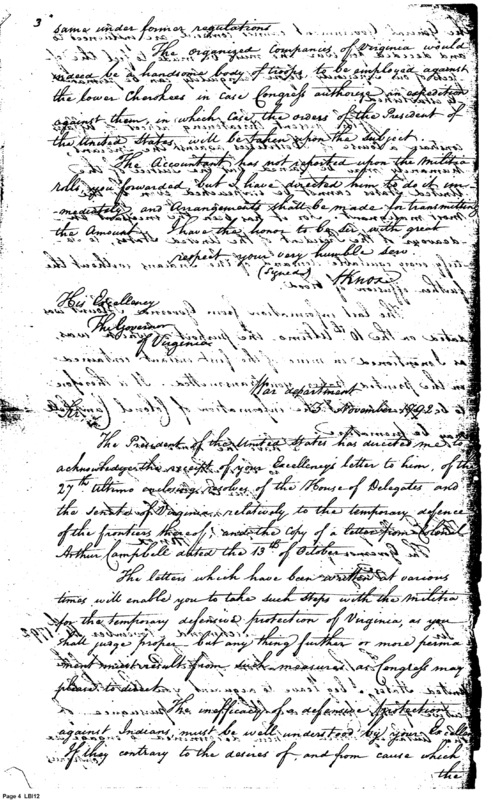 3
same under former regulations
The organized companies of Virginia would
indeed be a handsome body of troops to be employed against
the lower Cherokees in case Congress authorize an expedition
against them, in which case the orders of the President of
the United States will be taken upon the subject.
The Accountant has not reported upon the Militia
rolls you forwarded but I have directed him to do it im-
mediately and Arrangements shall be made for transmitting
the Amount. I have the honor to be Sir with great
respect your very humble serv
(Signed)
HKnox
His Excellency
The Governor
of Virginia
War department
3 November 1792
Sir,
The President of the United States has directed me to
acknowledge the receipt of your Excellency's letter to him, of the
27th ultimo enclosing resolves of the House of Delegates and
the Senate of Virginia relatively to the temporary defence
of the frontiers thereof; and the Copy of a letter from Colonel
Arthur Campbell dated the 13th of October
The letters which have been written at various
times will enable you to take such steps with the Militia
for the temporary defensive protection of Virginia, as you
shall judge proper but any thing further or more perma
nent must result from such measures as Congress may
please to direct
The inefficacy of a defensive protection
against Indians must be well understood by your Excellen
If they contrary to the desires of, and from cause which
the
Page 4 LBI12